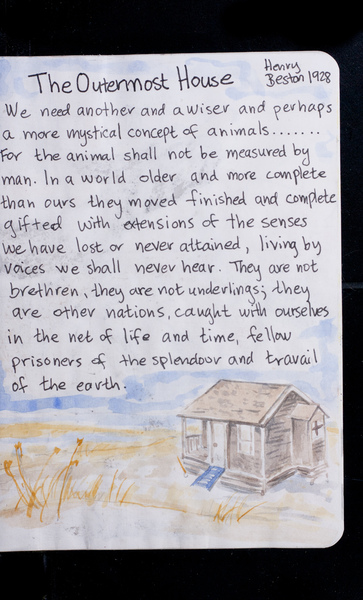 The Outermost House
Henry
Beston 1928
We need another and a wiser and perhaps
a more mystical concept of animals.......
For the animal shall not be measured by
man. In a world older and more complete
than ours they moved finished and complete
gifted with extensions of the senses
we have lost or never attained, living by
voices we shall never hear. They are not
brethren, they are not underlings; they
are other nations, caught with ourselves
in the net of life and time, fellow
prisoners of the splendour and travail
of the earth.